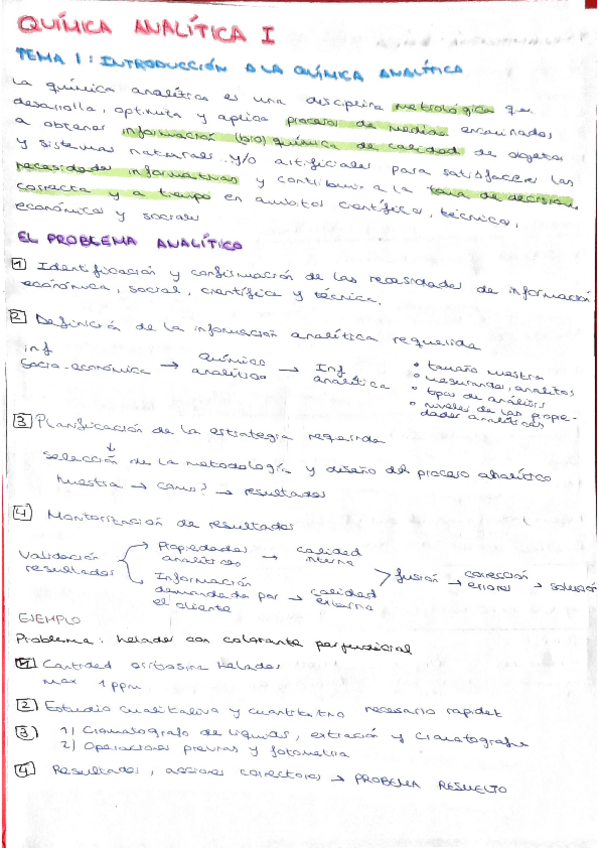 QUÍMICA ANALÍTICA I
TEMA 1: INTRODUCCIÓN A LA QUÍMICA ANALÍTICA
La química analítica es una disciplina metrológica que
desarrolla, optimiza y aplica procesos de medida encaminados
a obtener información (bio)química de calidad de objetos
y sistemas naturales y/o artificiales para satisfacer las
necesidades informativas y contribuir a la toma de decisiones
correcta y a tiempo en ámbitos científica, técnica,
económica y social
EL PROBLEMA ANALÍTICO
1 Identificación y confirmación de las necesidades de información
económica, social, científica y técnica.
2 Definición de la información analítica requerida
inf
socio-económica → químico analítico → Inf analítica
• tamaño muestra
• mesurandos, analitos
• tipos de análisis
• niveles de las propiedades analíticas
3 Planificación de la estrategia requerida
↓
selección de la metodología y diseño del proceso analítico
Muestra → cómo? → resultados
4 Monitorización de resultados
Validación resultados
Propiedades analíticas → calidad interna
Información demandada por el cliente → calidad externa
> fusión → corrección errores → solución
EJEMPLO
Problema: helados con colorante perjudicial
1 Cantidad helados
max 1 ppm
2 Estudio cualitativo y cuantitativo necesario rapidez
3 1) Cromatógrafo de líquidos, extracción y cromatógrafo
2) Operaciones previas y fotometría
4 Resultados, acciones correctoras → PROBEMA RESUELTO